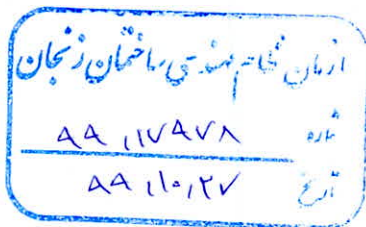 سازمان نظام مهندسی ساختمان زنجان
شماره ۹۹،۱۷۹۷۸
تاریخ ۹۹،۱۰،۲۷